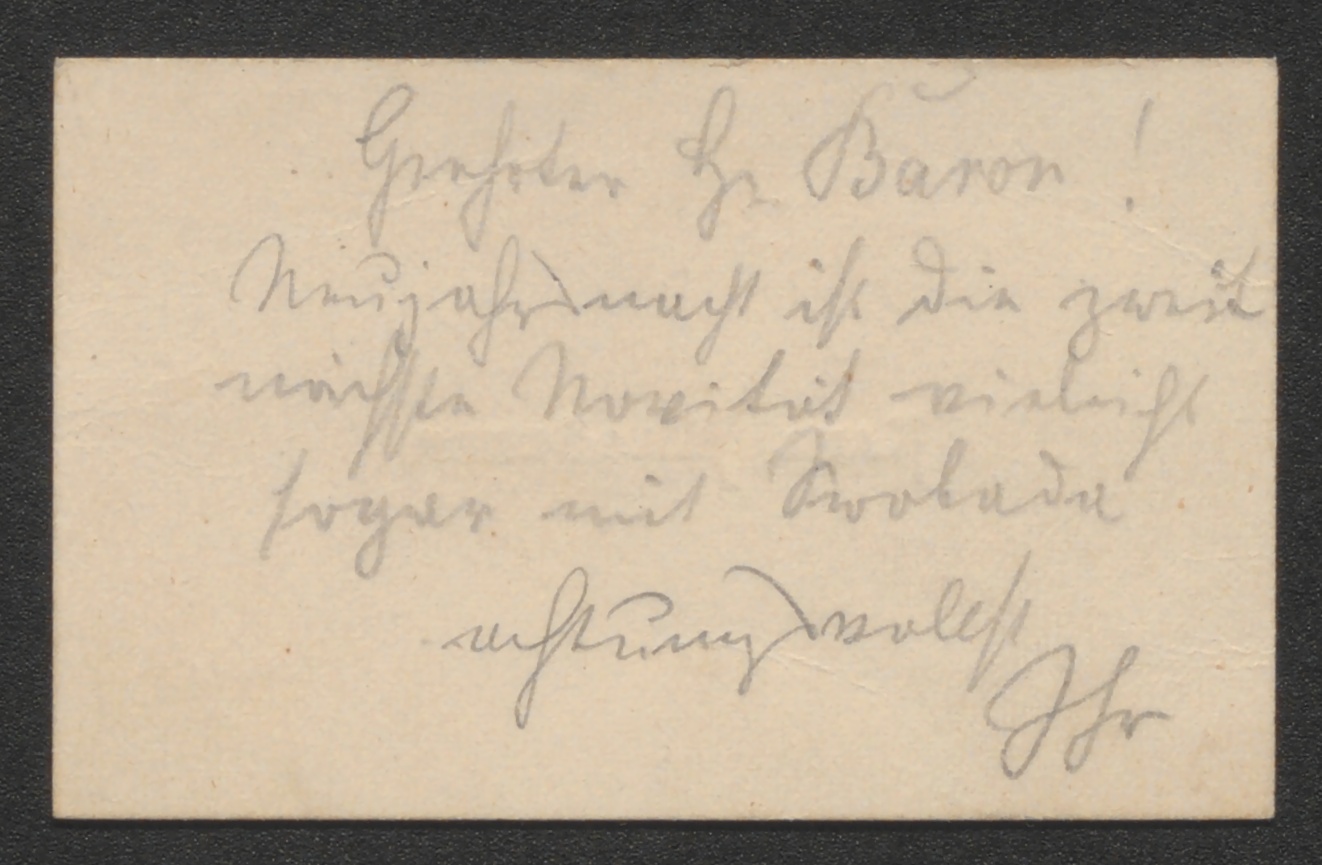 Geehrter Hr. Baron!
Neujahrsnacht ist die zweit
nächste Novität vieleicht
sogar mit Swoboda
achtungsvollst
Ihr